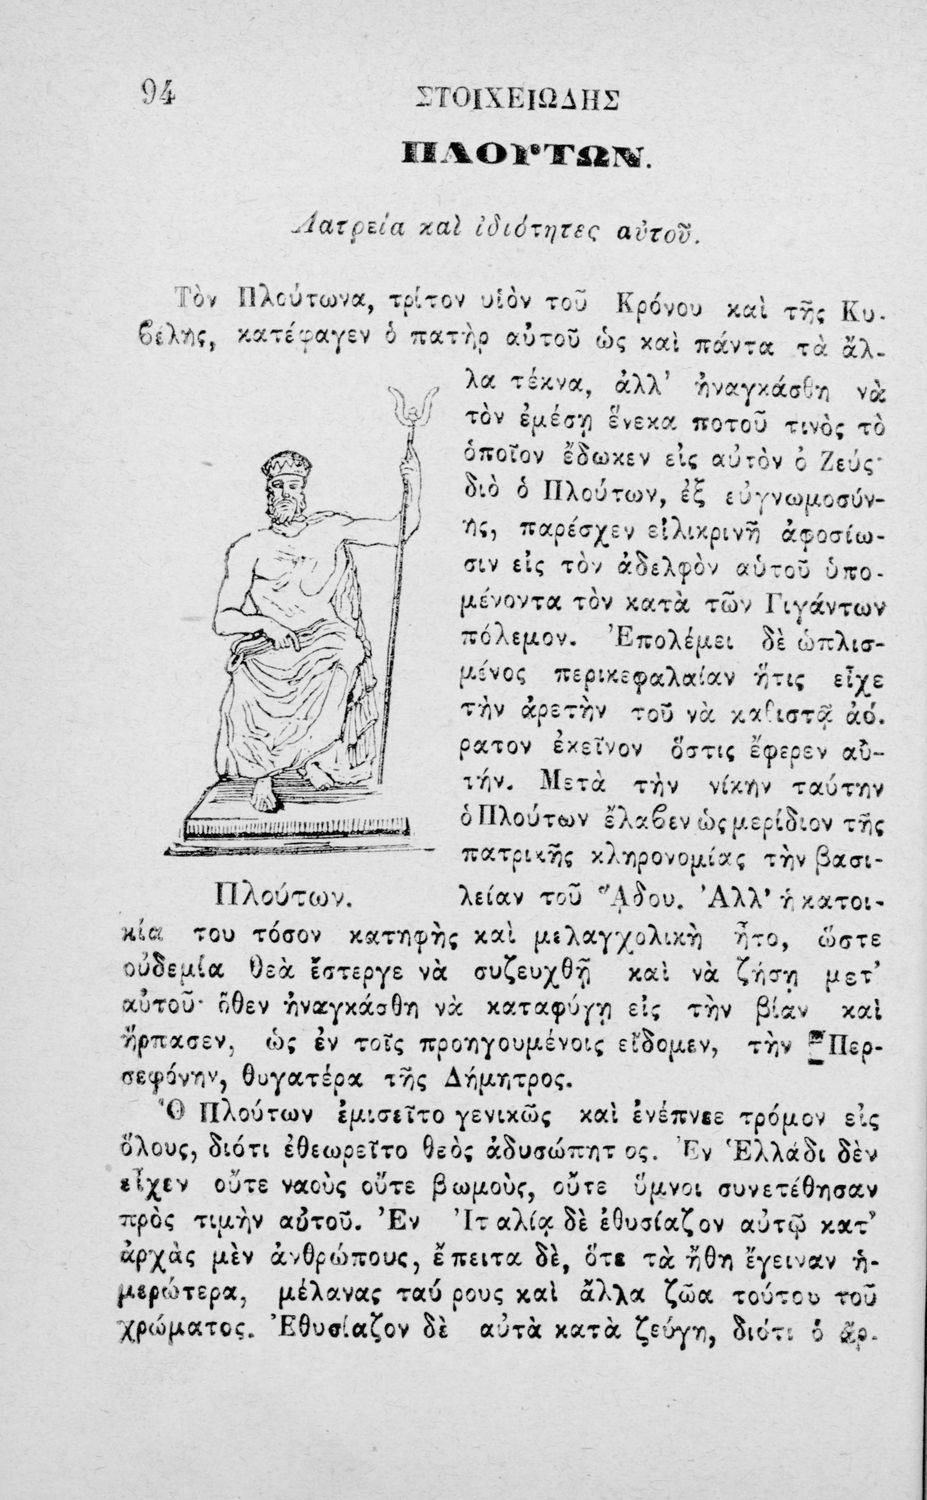 94
ΣΤΟΙΧΕΙΩΔΗΣ
ΠΛΟΥΤΩΝ.
Λατρεία καὶ ἰδιότητες αὐτοῦ.
Τὸν Πλούτωνα, τρίτον υἱὸν τοῦ Κρόνου καὶ τῆς Κυ-
βέλης, κατέφαγεν ὁ πατὴρ αὐτοῦ ὡς καὶ πάντα τὰ ἄλ-
λα τέκνα, ἀλλ' ἠναγκάσθη νὰ
τὸν ἐμέσῃ ἕνεκα ποτοῦ τινὸς τὸ
ὁποῖον ἔδωκεν εἰς αὐτὸν ὁ Ζεύς·
διὸ ὁ Πλούτων, ἐξ εὐγνωμοσύν-
ης, παρέσχεν εἰλικρινῆ ἀφοσίω-
σιν εἰς τὸν ἀδελφὸν αὑτοῦ ὑπο-
μένοντα τὸν κατὰ τῶν Γιγάντων
πόλεμον. Ἐπολέμει δὲ ὡπλισ-
μένος περικεφαλαίαν ἥτις εἶχε
τὴν ἀρετὴν τοῦ νὰ καθιστᾷ ἀό.
ρατον ἐκεῖνον ὅστις ἔφερεν αὐ-
τήν. Μετὰ τὴν νίκην ταύτην
ὁ Πλούτων ἔλαβεν ὡς μερίδιον τῆς
πατρικῆς κληρονομίας τὴν βασι-
λείαν τοῦ ᾍδου. Ἀλλ' ἡ κατοι-
Πλούτων.
κία του τόσον κατηφὴς καὶ μελαγχολικὴ ἦτο, ὥστε
οὐδεμία θεὰ ἔστεργε νὰ συζευχθῇ καὶ νὰ ζήσῃ μετ'
αὐτοῦ· ὅθεν ἠναγκάσθη νὰ καταφύγῃ εἰς τὴν βίαν καὶ
ἥρπασεν, ὡς ἐν τοῖς προηγουμένοις εἴδομεν, τὴν Περ-
σεφόνην, θυγατέρα τῆς Δήμητρος.
Ὁ Πλούτων ἐμισεῖτο γενικῶς καὶ ἐνέπνεε τρόμον εἰς
ὅλους, διότι ἐθεωρεῖτο θεὸς ἀδυσώπητος. Ἐν Ἑλλάδι δὲν
εἶχεν οὔτε ναοὺς οὔτε βωμοὺς, οὔτε ὕμνοι συνετέθησαν
πρὸς τιμὴν αὐτοῦ. Ἐν Ἰταλίᾳ δὲ ἐθυσίαζον αὐτῷ κατ'
ἀρχὰς μὲν ἀνθρώπους, ἔπειτα δὲ, ὅτε τὰ ἤθη ἔγειναν ἡ-
μερώτερα, μέλανας ταύρους καὶ ἄλλα ζῶα τούτου τοῦ
χρώματος. Ἐθυσίαζον δὲ αὐτὰ κατὰ ζεύγη, διότι ὁ ἄρ-